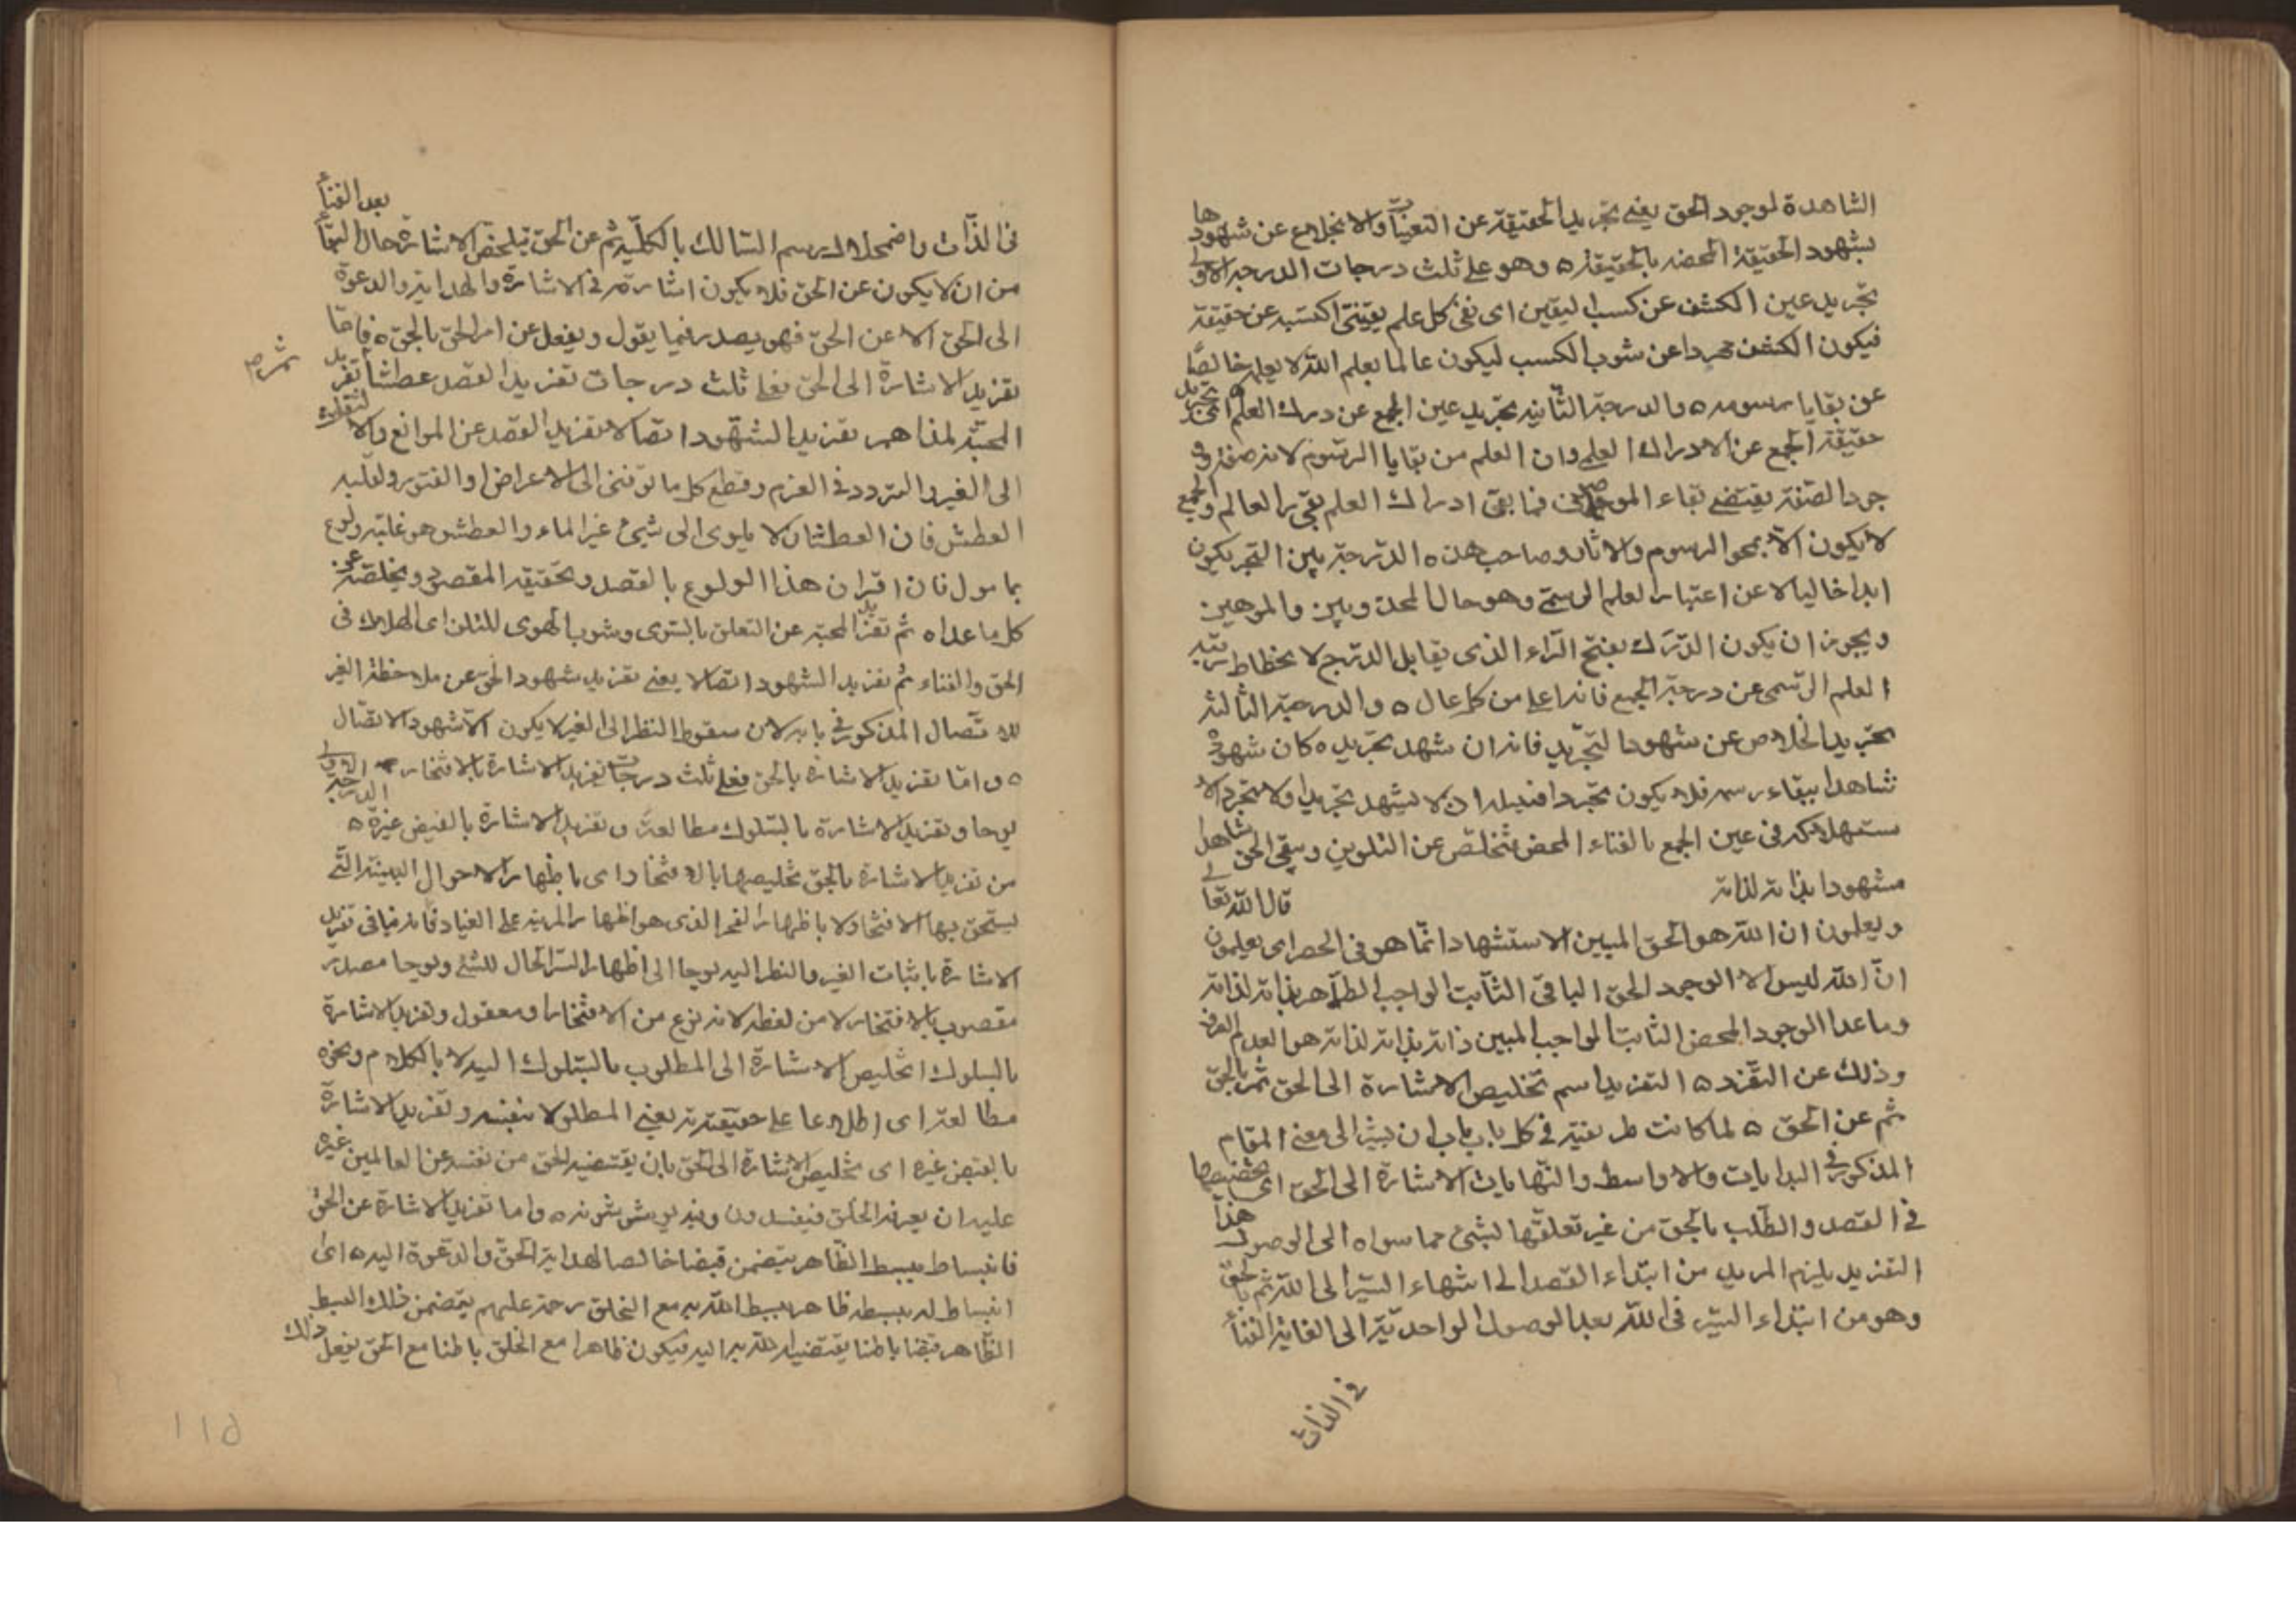 الشاهدة لوجود الحق يعنى تجريد الحقيقة عن التعينات والانخلاع عن شهودها
بشهود الحقيقة المحضه بالحقيقة ه وهو على ثلث درجات الدرجة الاولى
تجريد عين الكشف عن كسب اليقين اى نفى كل علم يقينى اكتسبه عن حقيقة
فيكون الكشف مجردا عن شوب الكسب ليكون عالما بعلم الله لا بعلمه خالصًا
عن بقايا رسومه ه والدرجة الثانية تجريد عين الجمع عن درك العلم اى تجريد
حقيقة الجمع عن الادراك العلمى وان العلم من بقايا الرسوم لانه صفة و
جود الصفة يقتضى بقاء الموصوف فما بقى ادراك العلم بقى العالم والجمع
لا يكون الا بمحو الرسوم والاثار وصاحب هذه الدرجة يكون
ابدا خاليا عن اعتبار العلم الرسمى وهو حال
ويجوز ان يكون الدرَك بفتح الراء الذى يقابل الدرج لانحطاط رتبة
العلم الرسمى عن درجة الجمع فانه اعلى من كل عال ه والدرجة الثالثة
تجريد الخلاص عن شهود التجريد فانه ان شهد تجريده كان شهوده
شاهدا ببقاء رسمه فلا يكون مجردا فسبيله ان لا يشهد تجريدا ولا تجردا لا
ستهلاكه فى عين الجمع بالفناء المحض فتخلص عن التلوين وبقى الحق شاهدا
مشهودا بذاته لذاته قال الله تعالى
ويعلمون ان الله هو الحق المبين الاستشهاد انما هو فى الحصر اى يعلمون
انّ الله ليس الا الوجود الحق الباقى الثابت الواجب الظاهر بذاته لذاته
وما عدا الوجود المحض الثابت الواجب المبين ذاته بذاته لذاته هو العدم الصرف
وذلك عن التفرد ه التفريد اسم تخليص الاشارة الى الحق ثم بالحق
ثم عن الحق ه لما كانت طريقته فى كل باب باب ان يشير الى معنى المقام
المذكور فى البدايات والاواسط والنهايات الاشارة الى الحق اى تخصيصها
فى القصد والطلب بالحق من غير تعلقها بشئ مما سواه الى الوصول هذا
التفريد يلزم المريد من ابتداء القصد الى انتهاء السير الى الله ثم بالحق
وهو من ابتداء السير فى الله بعد الوصول الواحدية الى الغاية الفناء
فى الذات
فى الذات واضمحلال رسم السالك بالكلية ثم عن الحق تخليص الاشارة حال البقاء بعد الفناء
من ان لا يكون عن الحق فلا يكون اشارته فى الاشارة والهداية والدعوة
الى الحق الا عن الحق فهو يصدر فيما يقول ويفعل عن امر الحق بالحق ه فاما
تفريد الاشارة الى الحق فعلى ثلث درجات تفريد القصد عطشا ثم تفريد
المحبة تلفا ثم تفريد الشهود اتصالا تفريد القصد عن الموانع والالتفات
الى الغير والتردد فى العزم وقطع كل ما توقفنى الى الاعراض او الفتور ولغلبه
العطش فان العطشان لا يلوى الى شئ غير الماء والعطش هو غلبة ولوع
بما مول فان اقتران هذا الولوع بالقصد وتحقيقه المقصود ويخلصه عن
كل ما عداه ثم تفريد المحبة عن التعلق بالسوى وشوب الهوى للتلف اى الهلاك فى
الحق والفناء ثم تفريد الشهود اتصالا يعنى تفريد شهود الحق عن ملاحظة الغير
للاتصال المذكور فى بابه لان سقوط النظر الى الغير لا يكون الا شهود الاتصال
ه واما تفريد الاشارة بالحق فعلى ثلث درجات تفريد الاشارة بالافتخار الدرجة الاولى
بوحا وتفريد الاشارة بالسلوك مطالعة وتفريد الاشارة بالقبض غيرة ه
من تفريد الاشارة بالحق تخليصها بالافتخار اى باظهار الاحوال التى
يستحق بها الافتخار لا باظهار الفخر الذى هو اظهار المزية على العباد فانه ينافى تفريد
الاشارة باثبات الغير والنظر اليه بوحا اى اظهار السر الحال للشئ وبوحا مصدر
منصوب بالافتخار لا من لفظه لانه نوع من الافتخار او مفعول وتفريد الاشارة
بالسلوك اى تخليص الاشارة الى المطلوب بالسلوك اليه لا بالكلام ونحوه
مطالعة اى اطلاعا على حقيقته يعنى المطلوب لا بنفسه وتفريد الاشارة
بالقبض غيرة اى تخليص الاشارة الى الحق بان يقتضيه الحق من نفسه عن العالمين غيرة
عليه ان يعرفه الخلق فيفسدون وقته ه واما تفريد الاشارة عن الحق
فانبساط ببسط الظاهر يتضمن قبضا خالصا لهداية الحق والدعوة اليه ه اى
انبساط له ببسط ظاهر يبسط الله به مع الخلق رحمة عليهم يتضمن ذلك البسط
الظاهر قبضا باطنا يقتضيه الله به اليه فيكون ظاهرا مع الخلق باطنا مع الحق يفعل ذلك